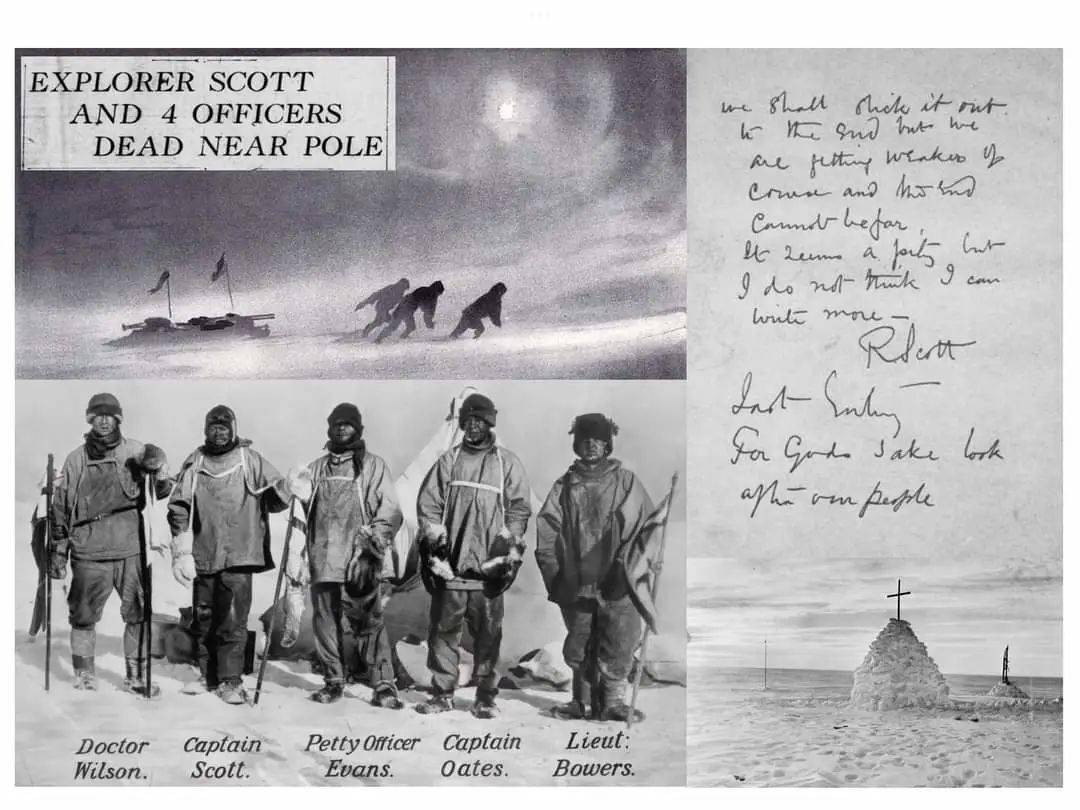 EXPLORER SCOTT
AND 4 OFFICERS
DEAD NEAR POLE
we shall stick it out
to the end but we
are getting weaker of
course and the end
cannot be far.
It seems a pity but
I do not think I can
write more —
R Scott
Last Entry
For Gods sake look
after our people
Doctor
Wilson.
Captain
Scott.
Petty Officer
Evans.
Captain
Oates.
Lieut:
Bowers.